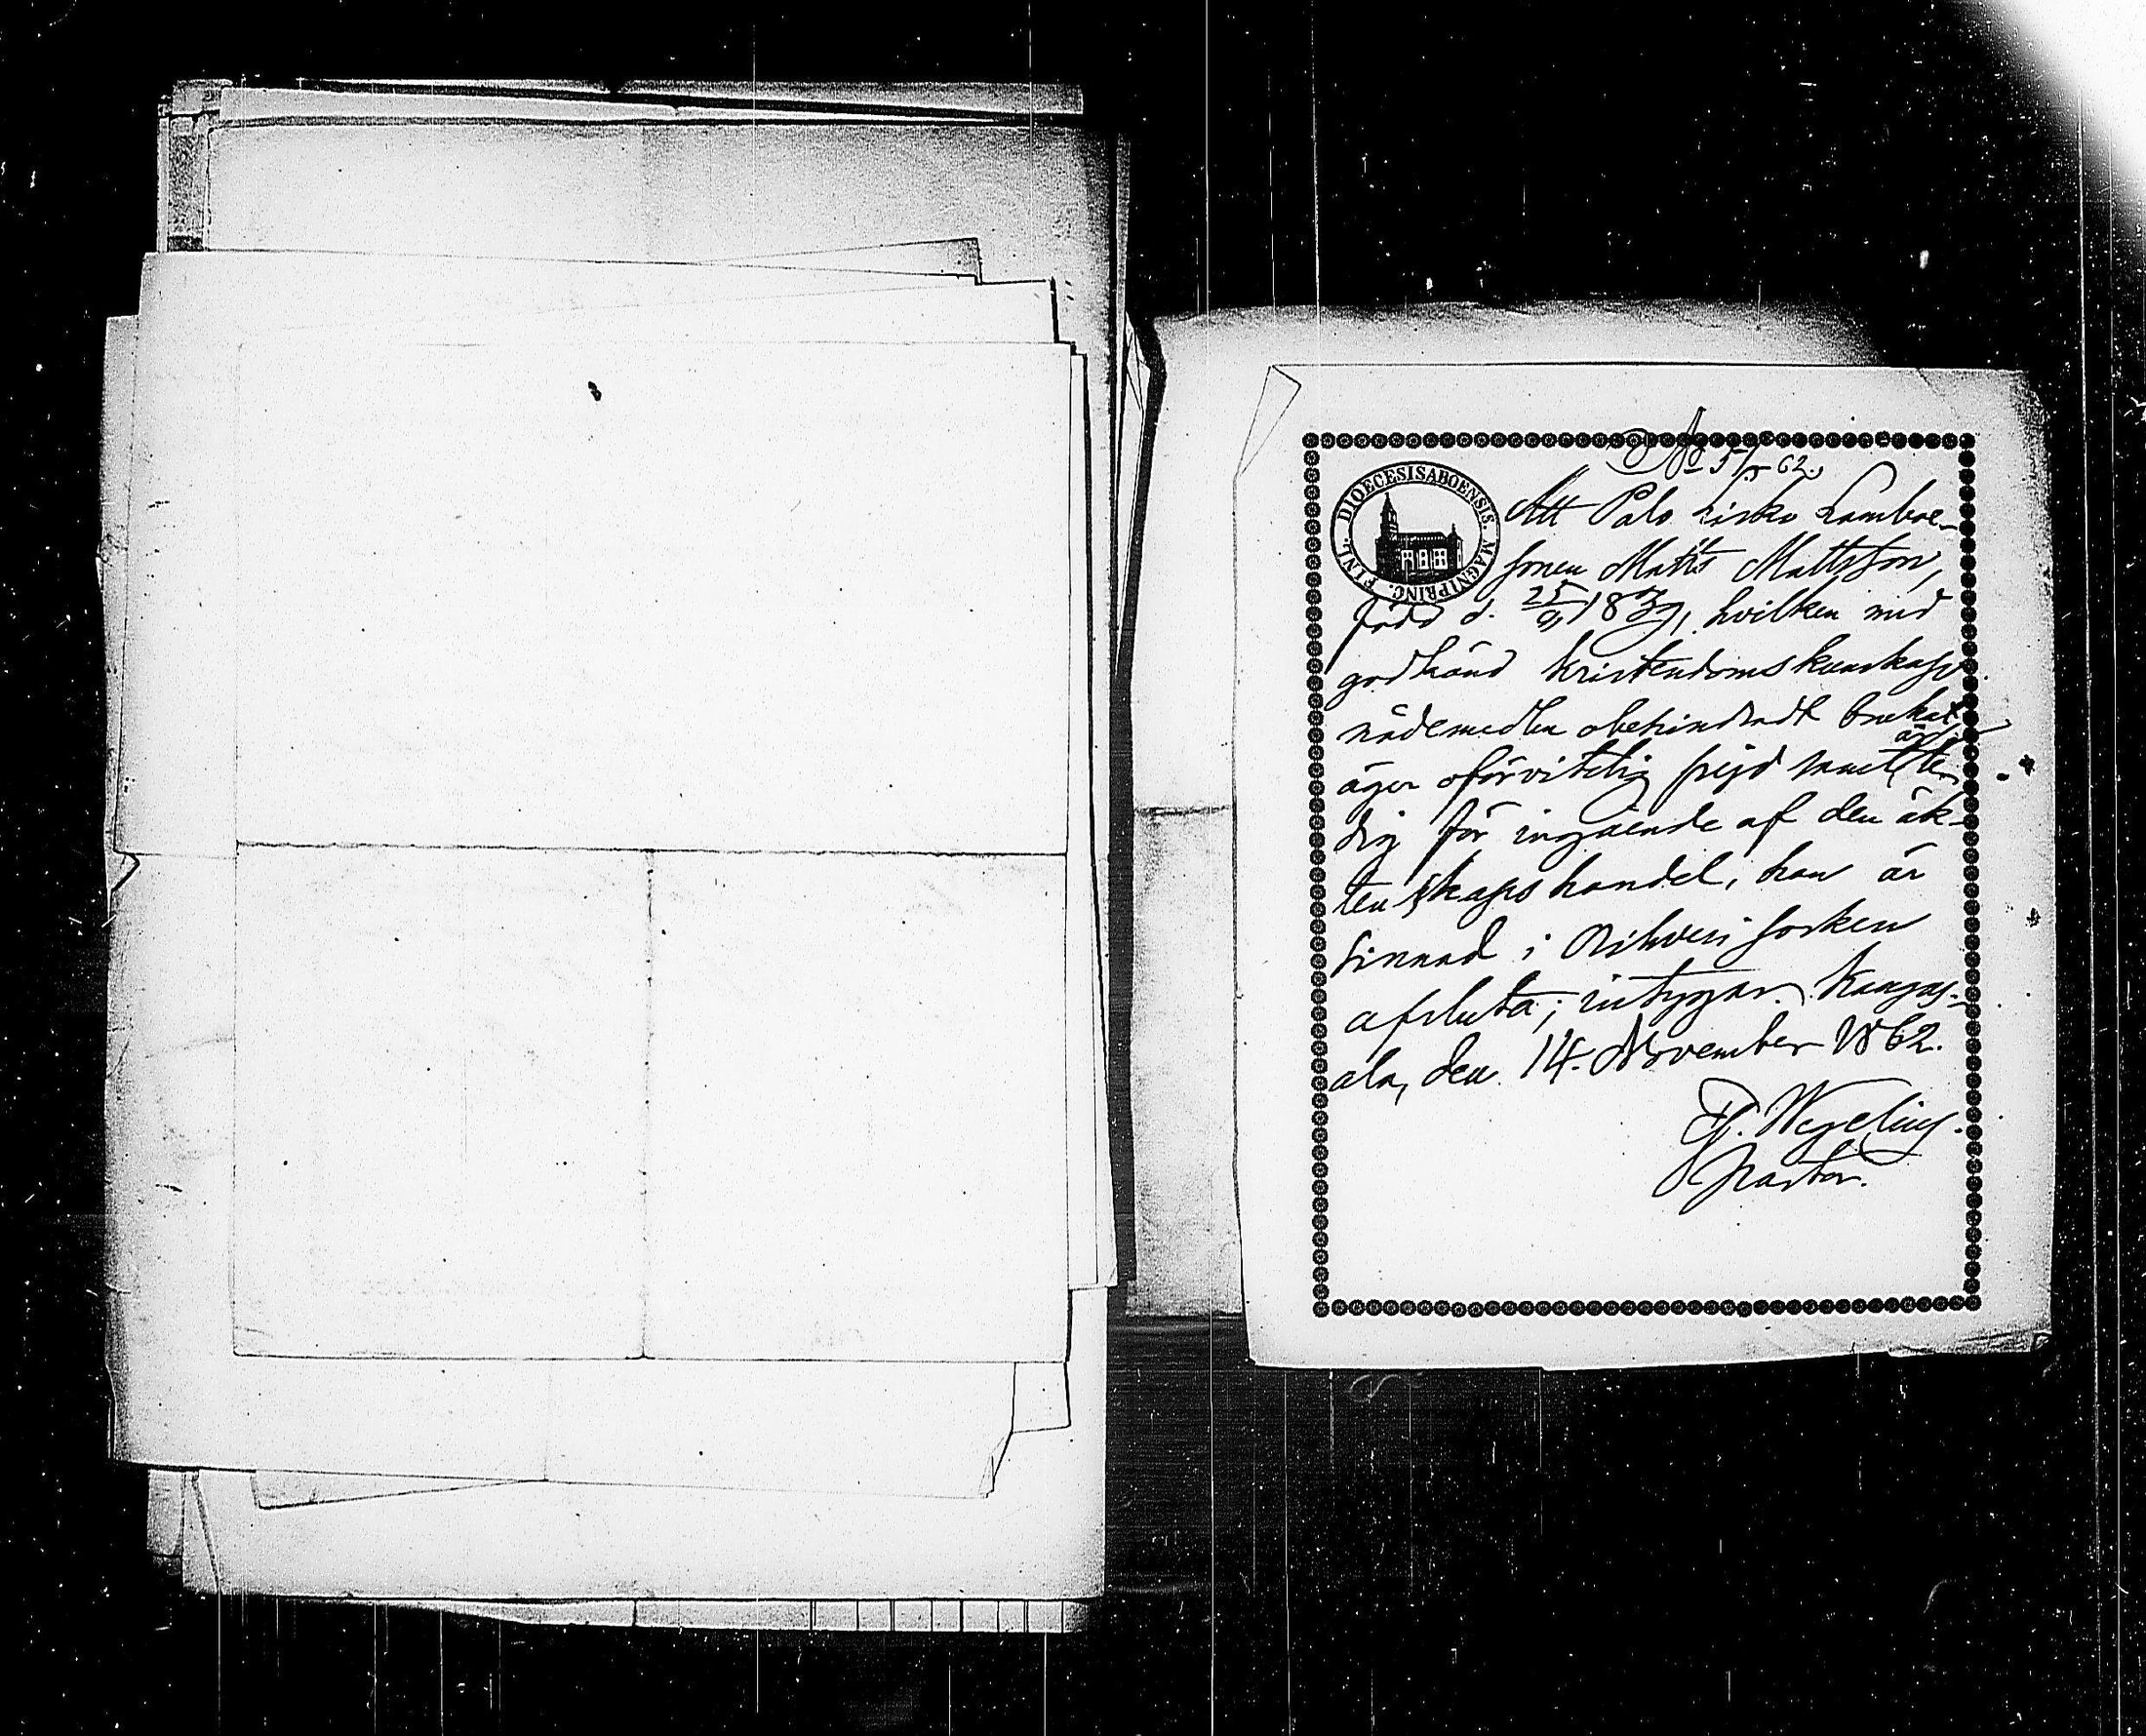 DIOECESIS ABOENSIS. MAGNI PRINC. FINL.
Att Palo Lisko Lamboe-
sonen Matts Mattsson,
född d. 25/9 1839, hvilken med
godkänd kristendomskunskap
nådemedlen obehindradt brukat,
äger oförvitelig frejd samt är le-
dig för ingående af den äk-
tenskapshandel, han är
sinnad i Orihvesi socken
afsluta; intygar. Kangas-
ala, den 14. November 1862.
Wegelius.
Pastor.